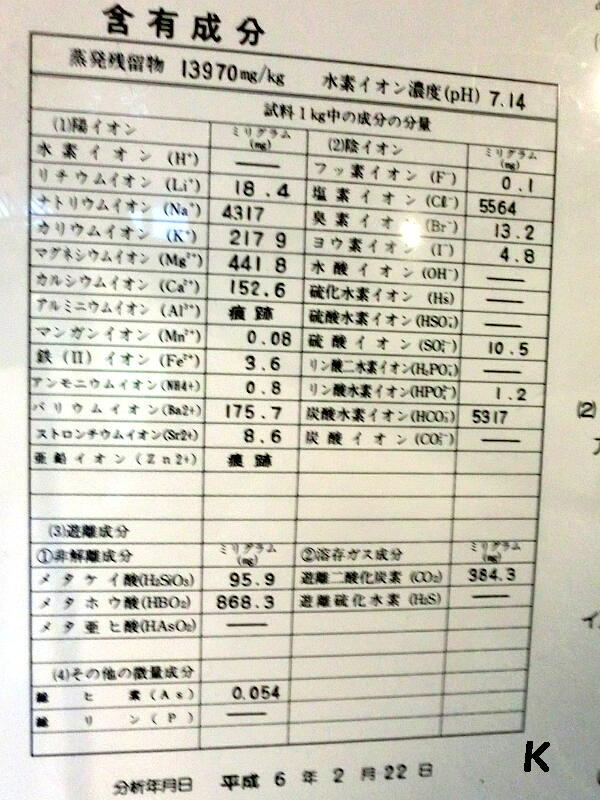 含有成分
蒸発残留物 13970mg/kg 水素イオン濃度(pH) 7.14
試料1kg中の成分の分量
(1)陽イオン ミリグラム(mg) (2)陰イオン ミリグラム(mg)
水素イオン (H⁺) —— フッ素イオン (F⁻) 0.1
リチウムイオン (Li⁺) 18.4 塩素イオン (Cℓ⁻) 5564
ナトリウムイオン (Na⁺) 4317 臭素イオン (Br⁻) 13.2
カリウムイオン (K⁺) 217 9 ヨウ素イオン (I⁻) 4.8
マグネシウムイオン (Mg²⁺) 441 8 水酸イオン (OH⁻) ——
カルシウムイオン (Ca²⁺) 152.6 硫化水素イオン (Hs) ——
アルミニウムイオン (Al³⁺) 痕跡 硫酸水素イオン(HSO₄⁻) ——
マンガンイオン (Mn²⁺) 0.08 硫酸イオン (SO₄²⁻) 10.5
鉄(II)イオン (Fe²⁺) 3.6 リン酸二水素イオン(H₂PO₄⁻) ——
アンモニウムイオン(NH4+) 0.8 リン酸水素イオン(HPO₄²⁻) 1.2
バリウムイオン(Ba2+) 175.7 炭酸水素イオン(HCO₃⁻) 5317
ストロンチウムイオン(Sr2+) 8.6 炭酸イオン(CO₃²⁻) ——
亜鉛イオン(Zn2+) 痕跡
(3)遊離成分
①非解離成分 ミリグラム(mg) ②溶存ガス成分 ミリグラム(mg)
メタケイ酸(H₂SiO₃) 95.9 遊離二酸化炭素 (CO₂) 384.3
メタホウ酸(HBO₂) 868.3 遊離硫化水素 (H₂S) ——
メタ亜ヒ酸(HAsO₂) ——
(4)その他の微量成分
総ヒ素(As) 0.054
総リン(P) ——
分析年月日 平成 6 年 2 月 22 日
K
(2)